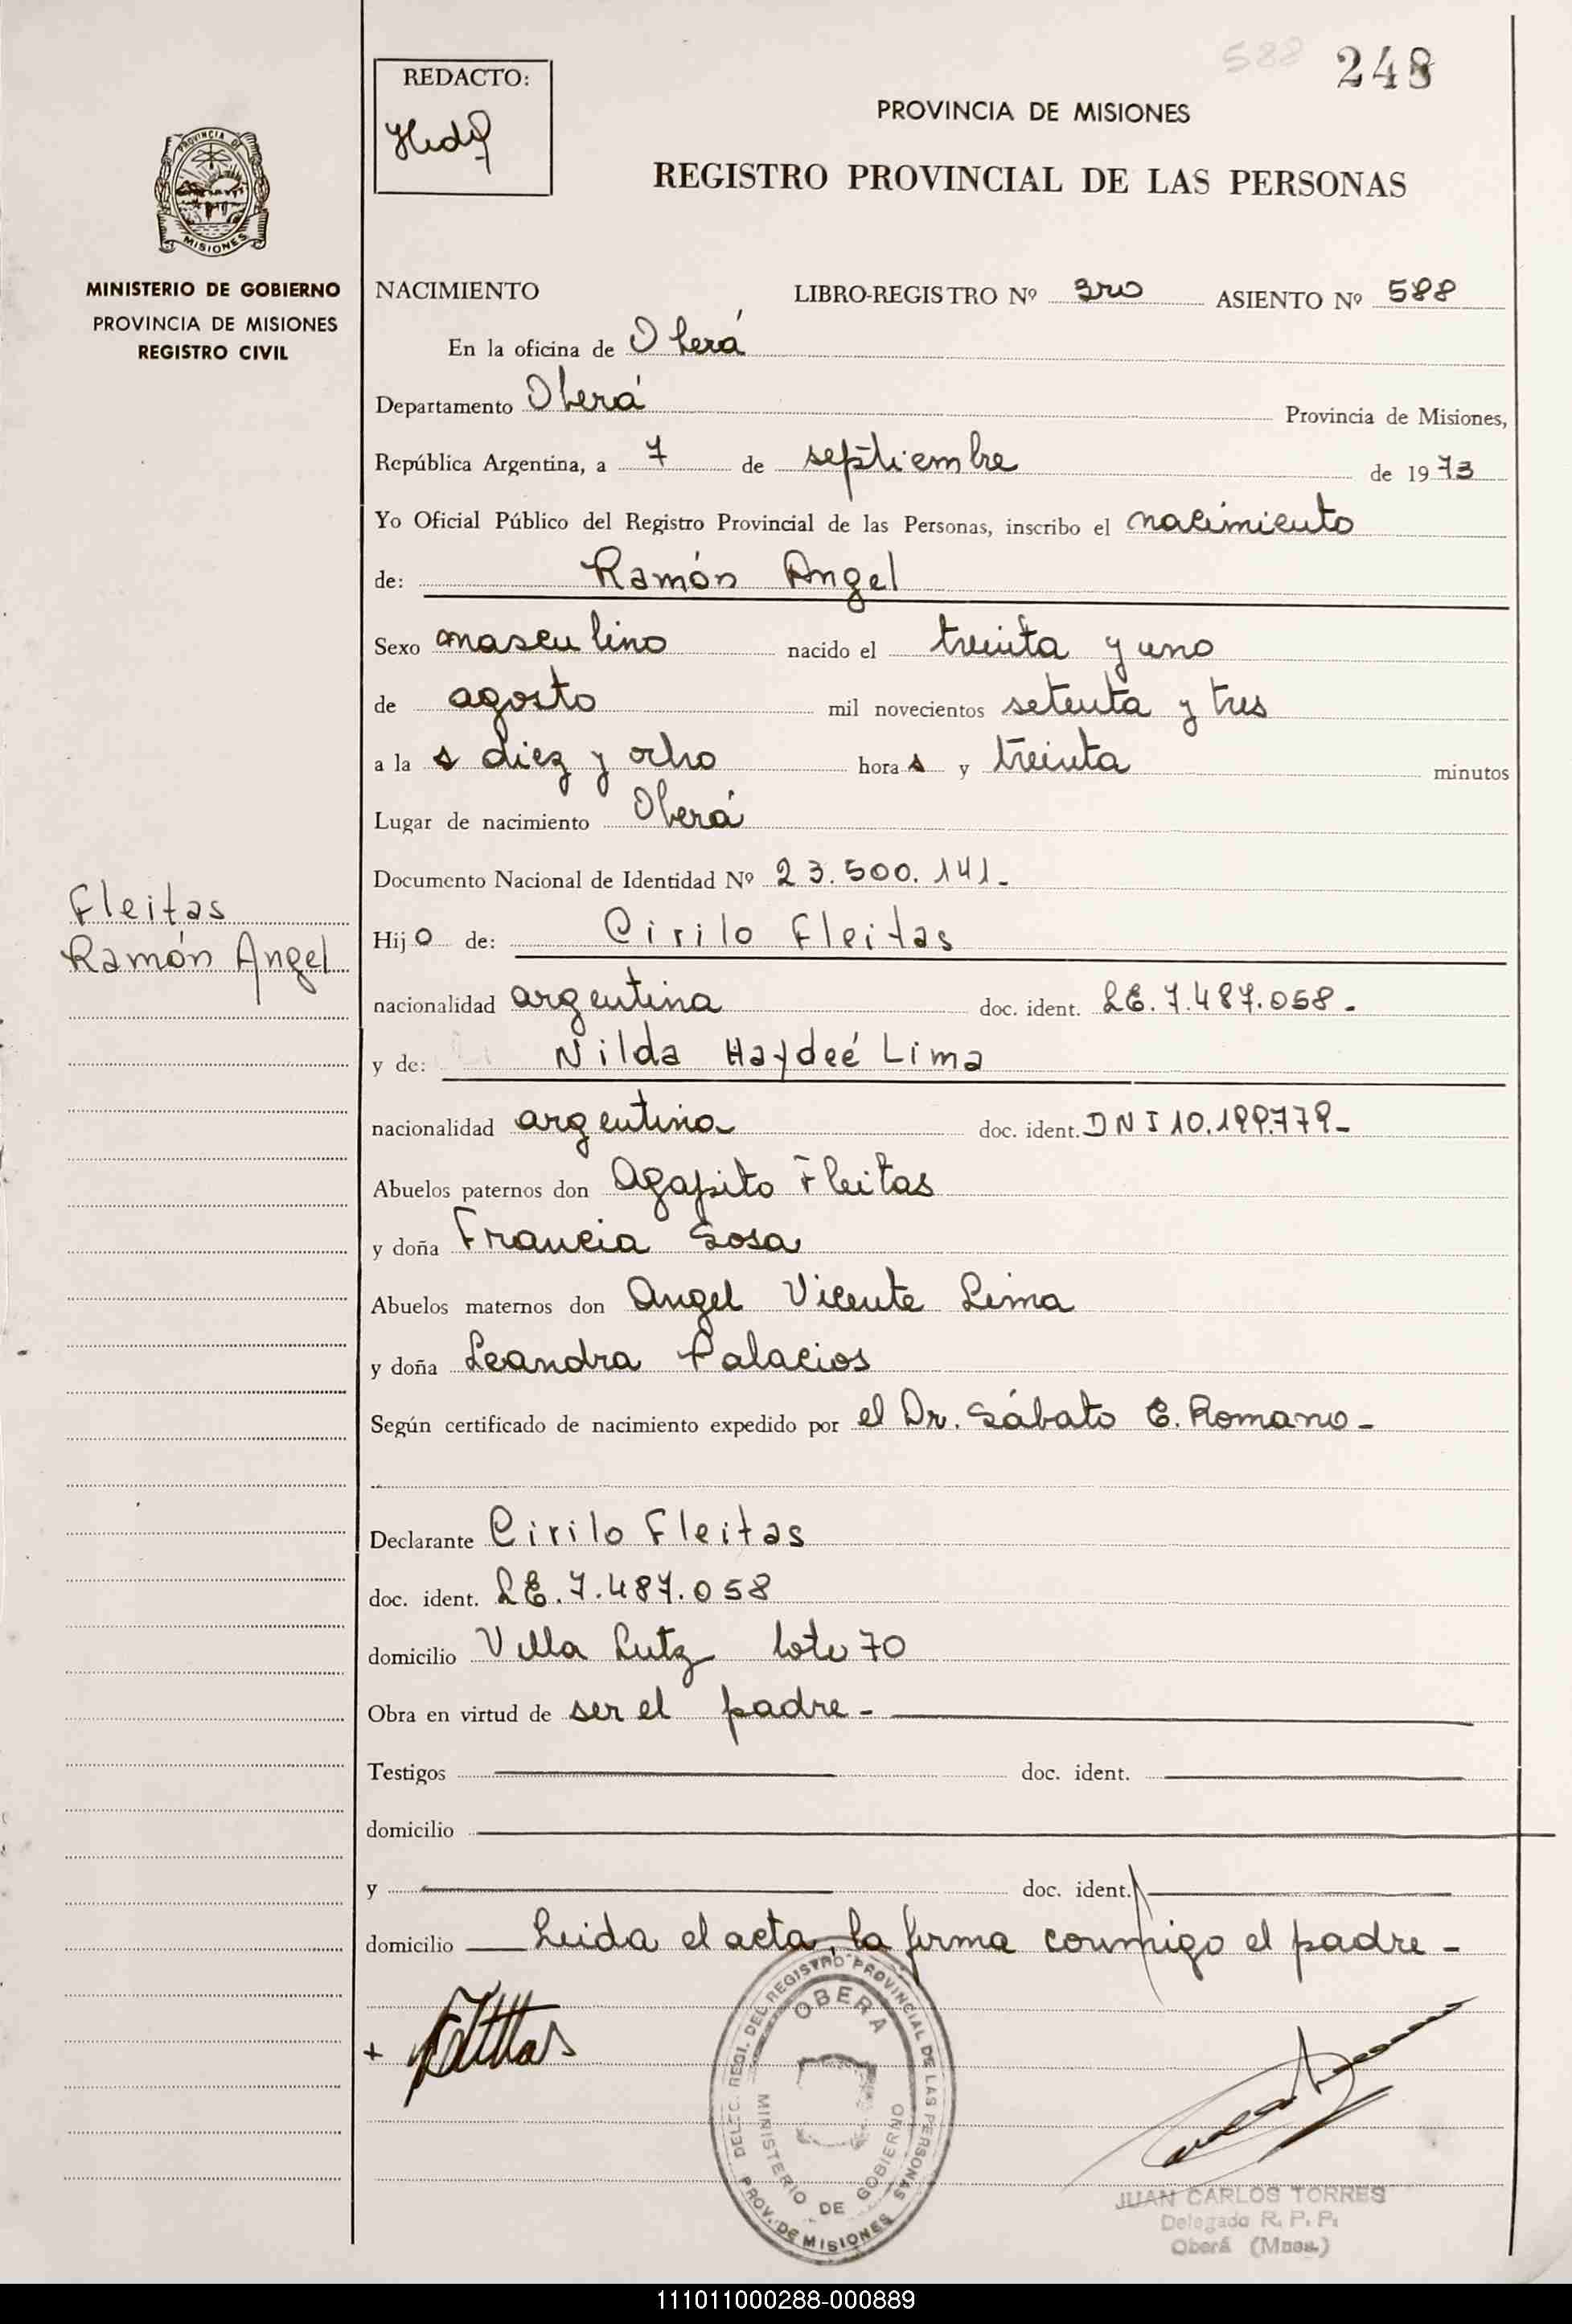 588 248
REDACTO:
PROVINCIA DE MISIONES
REGISTRO PROVINCIAL DE LAS PERSONAS
PROVINCIA DE
MISIONES
MINISTERIO DE GOBIERNO
PROVINCIA DE MISIONES
REGISTRO CIVIL
NACIMIENTO LIBRO-REGISTRO Nº 3ro ASIENTO Nº 588
En la oficina de Oberá
Departamento Oberá Provincia de Misiones,
República Argentina, a 7 de septiembre de 1973
Yo Oficial Público del Registro Provincial de las Personas, inscribo el nacimiento
de: Ramón Angel
Sexo masculino nacido el treinta y uno
de agosto mil novecientos setenta y tres
a las diez y ocho horas y treinta minutos
Lugar de nacimiento Oberá
Documento Nacional de Identidad Nº 23.500.141.-
Fleitas
Ramón Angel
Hijo de: Cirilo Fleitas
nacionalidad argentina doc. ident. LE. 7.487.058.-
y de: Nilda Haydeé Lima
nacionalidad argentina doc. ident. DNI 10.199.779-
Abuelos paternos don Agapito Fleitas
y doña Francia Sosa
Abuelos maternos don Angel Vicente Lima
y doña Leandra Palacios
Según certificado de nacimiento expedido por el Dr. Sábato E. Romano-
Declarante Cirilo Fleitas
doc. ident. LE. 7.487.058
domicilio Villa Lutz lote 70
Obra en virtud de ser el padre-
Testigos doc. ident.
domicilio
y doc. ident.
domicilio Leida el acta, la firma conmigo el padre-
DELEC. REGI. DEL REGISTRO PROVINCIAL DE LAS PERSONAS
OBERA
MINISTERIO DE GOBIERNO
PROV. DE MISIONES
JUAN CARLOS TORRES
Delegado R. P. P.
Oberá (Mnes.)
111011000288-000889